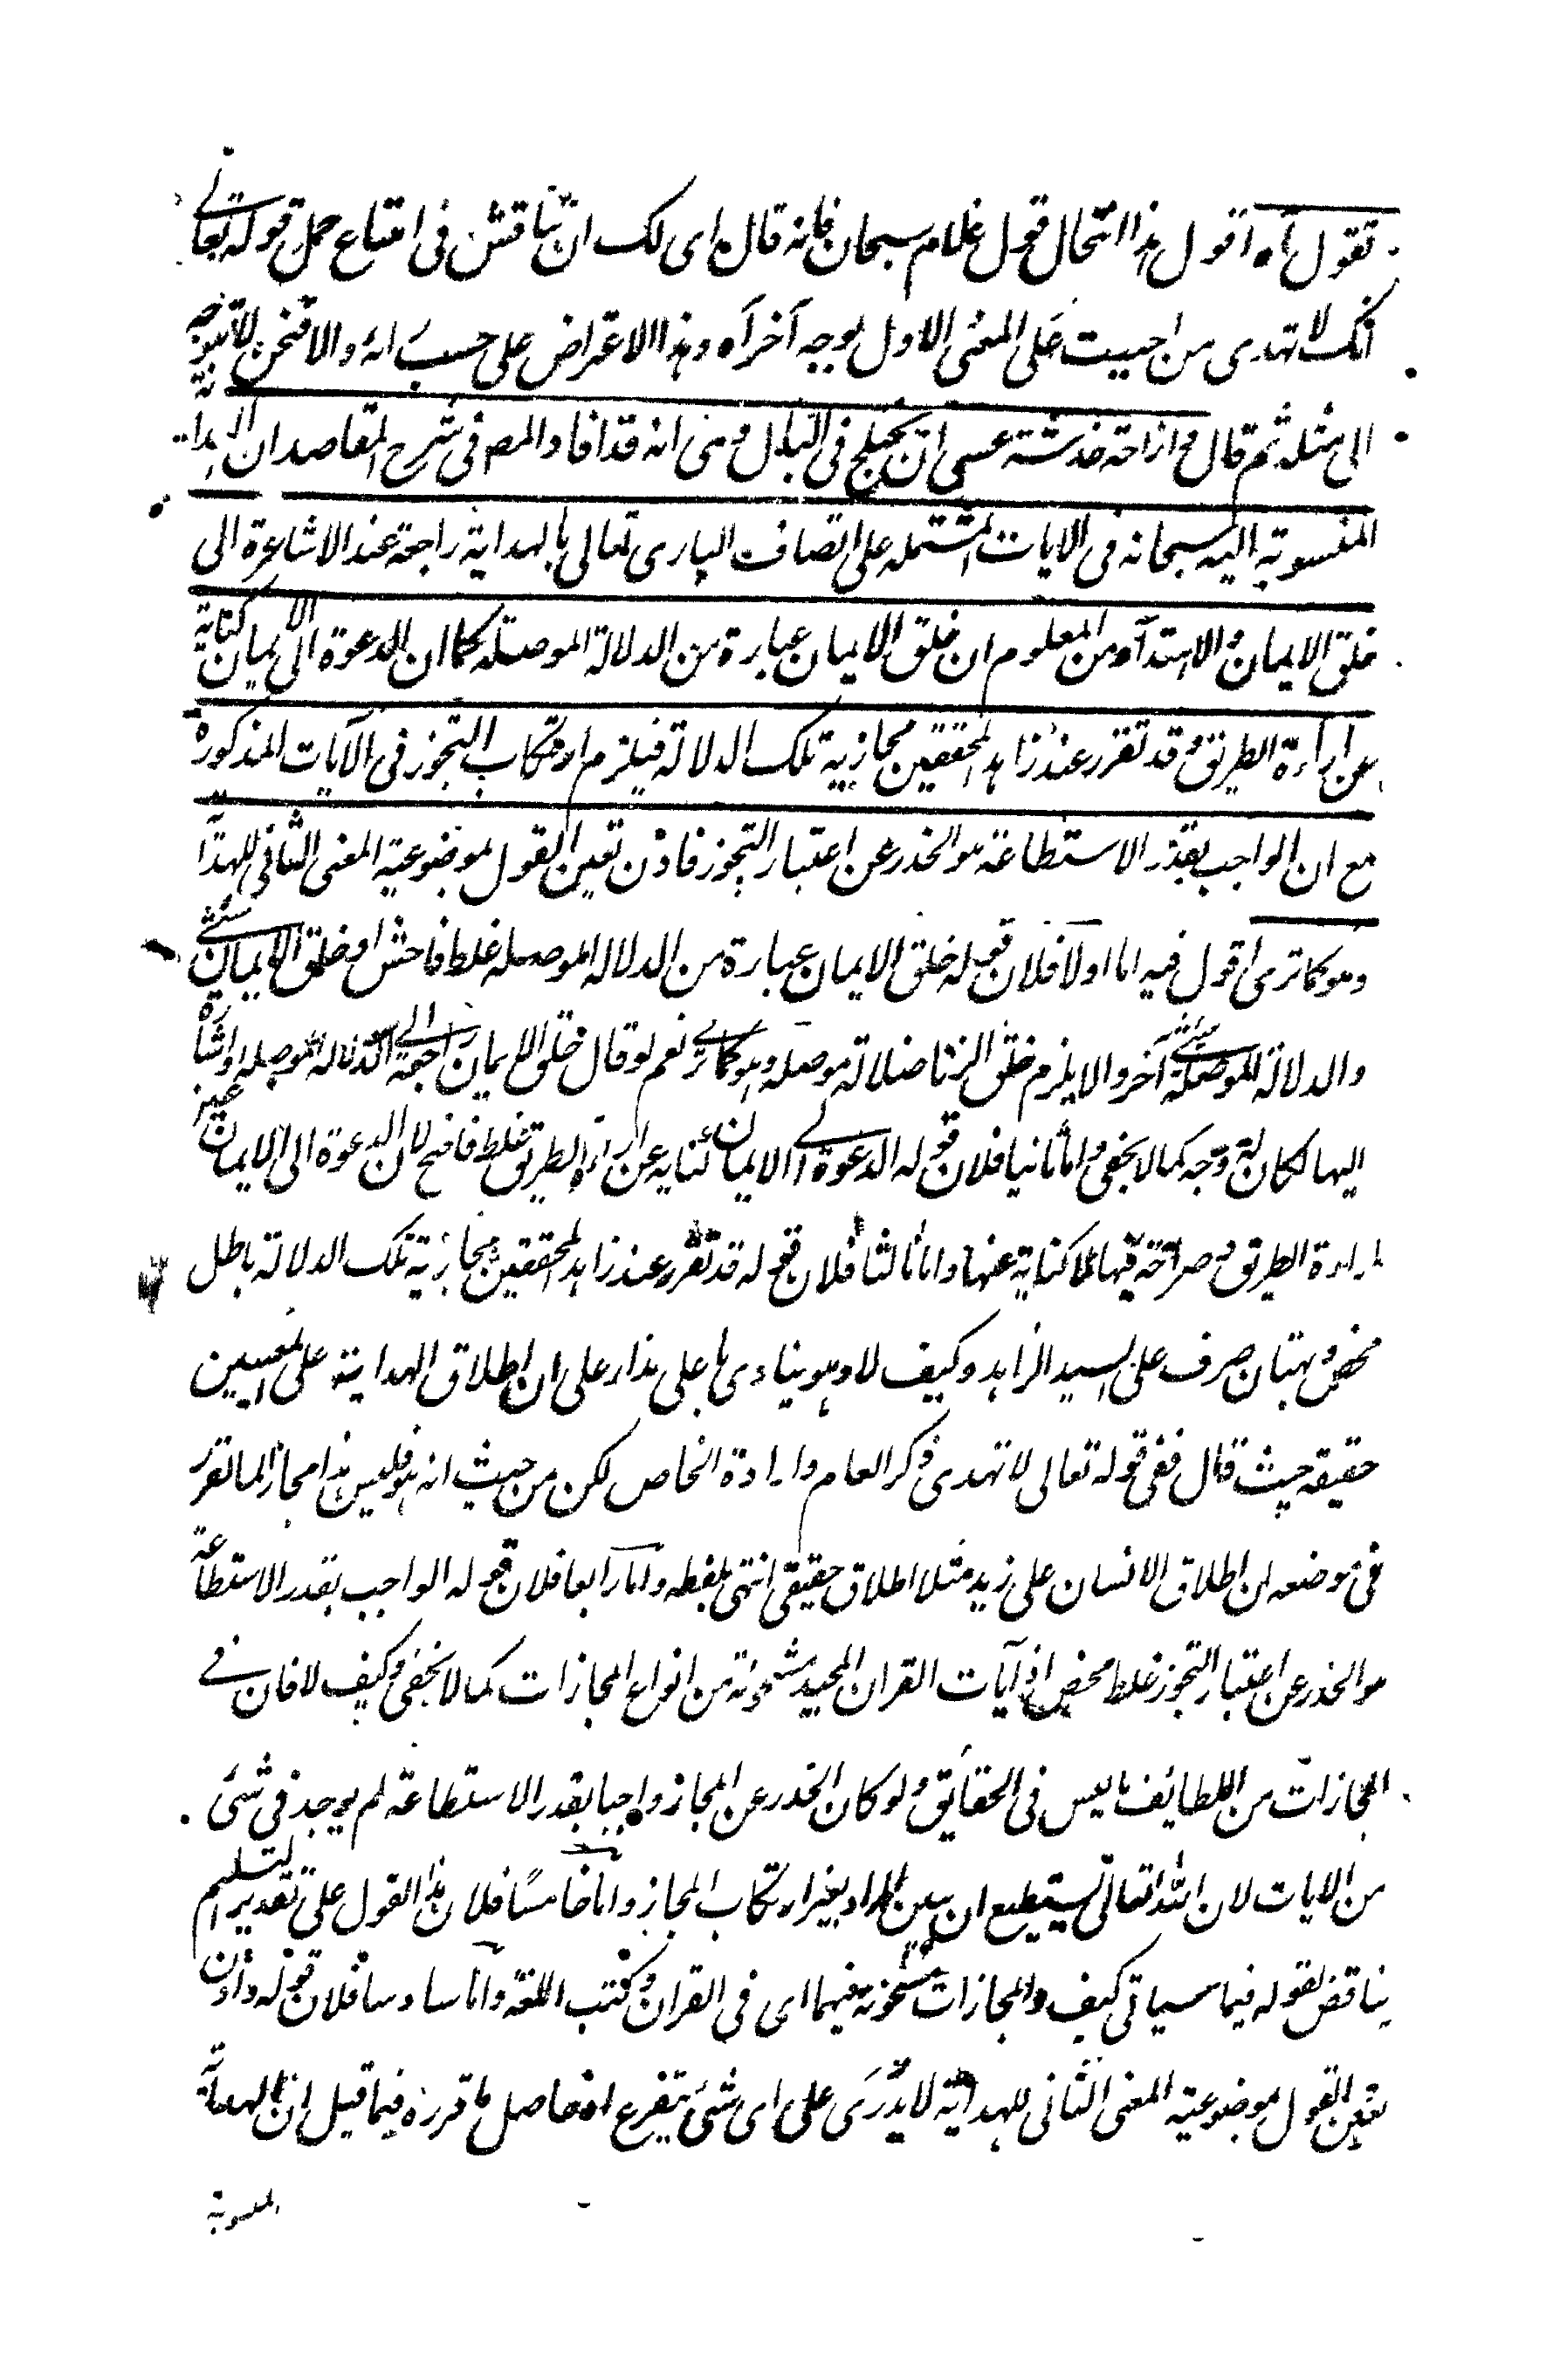 تقول آه اقول هذا انتحال قول غلام سبحان فانه قال هذا اى لك ان تناقش فى امتناع حمل قوله تعالے
انك لا تهدى من احببت على المعنى الاول بوجه آخر آه وهذا الاعتراض على حسب رائه والا فنحن لا نتوجه
الى مثله ثم قال وازاحة خدشة عسى ان تختلج فى البال وهى انه قد افاد المصـ فى شرح المقاصد ان الهداية
المنسوبة اليه سبحانه فى الايات المشتملة على اتصاف البارى تعالى بالهداية راجعة عند الاشاعرة الى
خلق الايمان والاهتداء ومن المعلوم ان خلق الايمان عبارة من الدلالة الموصلة كما ان الدعوة الى الايمان كناية
عن اراءة الطريق وقد تقرر عند زاهد المحققين مجازية تلك الدلالة فيلزم ارتكاب التجوز فى الآيات المذكورة
مع ان الواجب بقدر الاستطاعة هو الحذر عن اعتبار التجوز فاذن تعين القول بموضوعية المعنى الثانى للهداية
وهو كما ترى اقول فيه اما اولا فلان قوله خلق الايمان عبارة من الدلالة الموصلة غلط فاحش اذ خلق الايمان شئ
والدلالة الموصلة شئ آخر والا يلزم خلق الزنا ضلالة موصلة وهو كما ترے نعم لو قال خلق الايمان راجعة الے الدلالة الموصلة او اشارة
اليها لكان له وجه كما لا يخفى واما ثانيا فلان قوله الدعوة الے الايمان كناية عن اراءة الطريق غلط فاضح لان الدعوة الى الايمان عين
اراءة الطريق وصراحة فيها لا كناية عنها واما ثالثا فلان قوله قد تقرر عند زاهد المحققين مجازية تلك الدلالة باطل
محض وبهتان صرف على السيد الزاهد وكيف لا وهو ينادى باعلى نداء على ان اطلاق الهداية على المعنيين
حقيقة حيث قال ففى قوله تعالى لا تهدى ذكر العام وارادة الخاص لكن من حيث انه هو فليس هذا مجازا لما تقرر
فى موضعه ان اطلاق الانسان على زيد مثلا اطلاق حقيقى انتهى بلفظه واما رابعا فلان قوله الواجب بقدر الاستطاعة
هو الحذر عن اعتبار التجوز غلط محض اذ آيات القران المجيد مشحونة من انواع المجازات كما لا يخفى وكيف لا فان فے
المجازات من اللطايف ما ليس فى الحقايق ولو كان الحذر عن المجاز واجبا بقدر الاستطاعة لم يوجد فى شئ
من الايات لان الله تعالى يستطيع ان يبين المراد بغير ارتكاب المجاز واما خامسا فلان هذا القول على تقدير التسليم
يناقض لقوله فيما سياتى كيف والمجازات مشحونة فيهما اى فى القران وكتب اللغة واما سادسا فلان قوله واذن
تعين القول بموضوعية المعنى الثانى للهداية لا يدرى على اى شئ يتفرع اذ حاصل ما قرره فيما قيل ان الهداية
المنسوبة